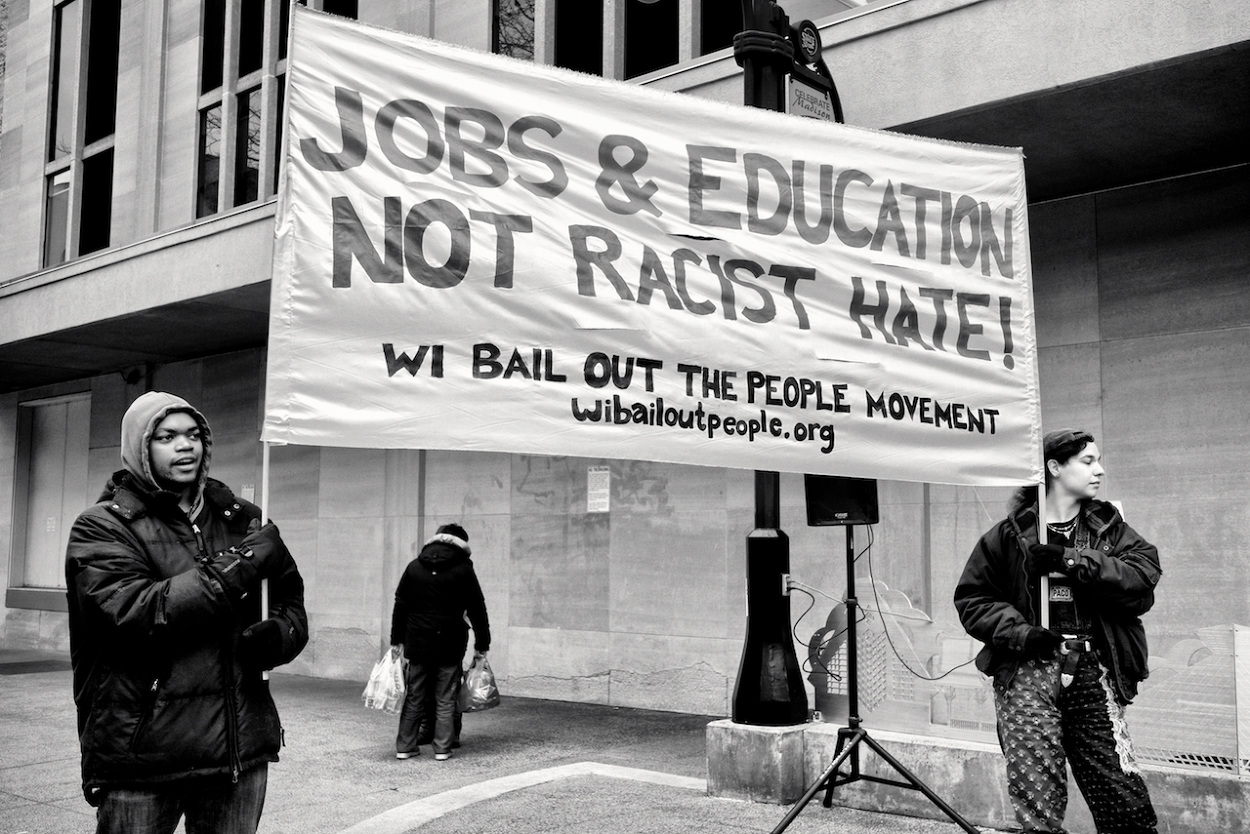 CELEBRATE
Madison
JOBS & EDUCATION
NOT RACIST HATE!
WI BAIL OUT THE PEOPLE MOVEMENT
wibailoutpeople.org
PACO